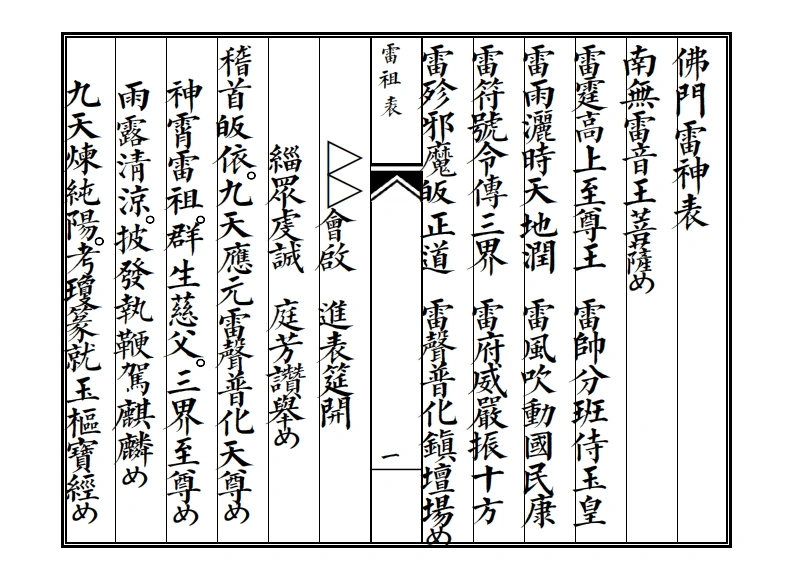 佛門雷神表
南無雷音王菩薩め
雷霆高上至尊王　雷帥分班侍玉皇
雷雨灑時天地潤　雷風吹動國民康
雷符號令傳三界　雷府威嚴振十方
雷殄邪魔皈正道　雷聲普化鎮壇場め
雷祖表
一
會啟　進表筵開
緇眾虔誠　庭芳讚舉め
稽首皈依。九天應元雷聲普化天尊め
神霄雷祖。群生慈父。三界至尊め
雨露清涼。披發執鞭駕麒麟め
九天煉純陽。考瓊篆就玉樞寶經め